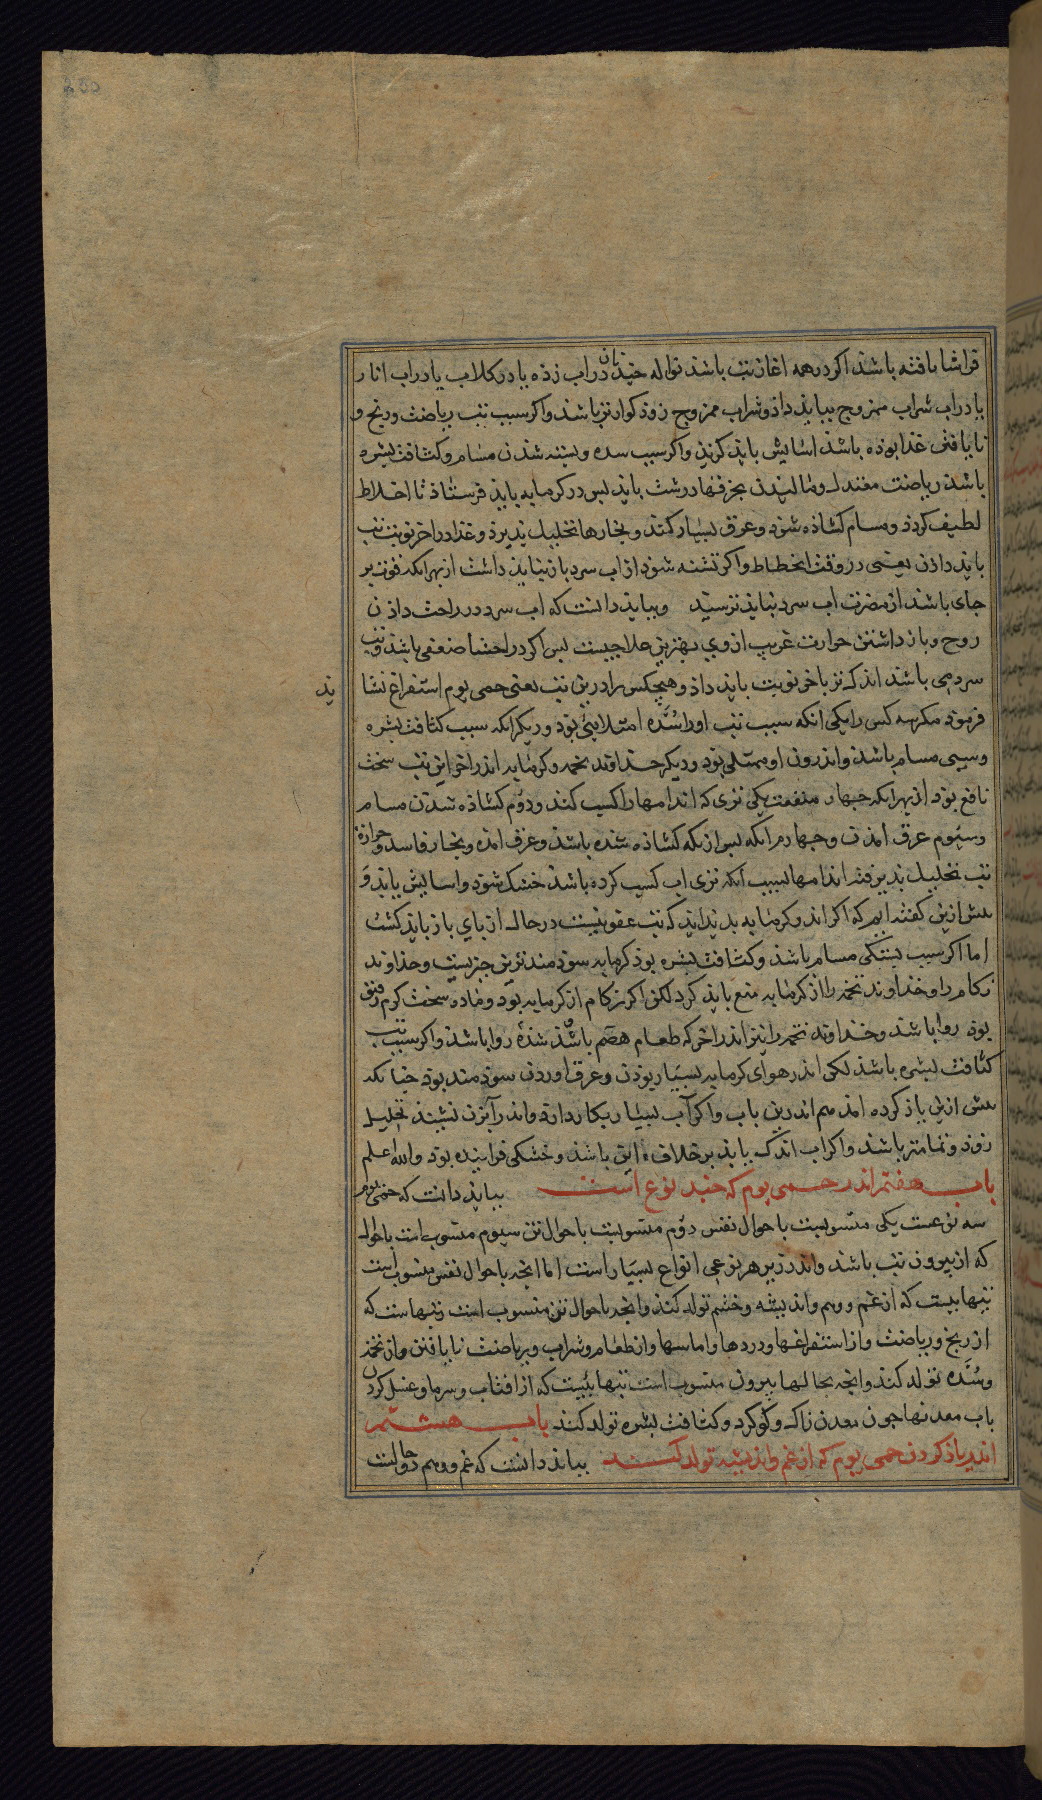 فراشا یافته باشد اکر درهمه اغاز تب باشد نواله چند نان دراب زده یا درکلاب یا دراب انار
یا دراب شراب ممزوج بباید داذ وشراب ممزوج زوذ کوارتر باشد واکر سبب تب ریاضت ورنج و
نایافتن غذا بوده باشد اسایش باید کزید واکر سبب سده وبسته شدن مسام وکثافت بشره
باشد ریاضت معتدل ومالیدن بخرقهاء درشت باید بس در کرمابه باید فرستاذ تا اخلاط
لطیف کردد ومسام کشاده شود وعرق بسیار کند وبخارها تحلیل بذیرد وغذا در اخر نوبت تب
باید داذن یعنی در وقت انحطاط واکر تشنه شود از اب سرد باز نباید داشت از بهر انکه قوت بر
جای باشد از مضرت اب سرد نباید ترسید وبباید دانست که اب سرد در راحت داذن
روح وباز داشتن حرارت غریب ازوی بهترین علاجیست بس اکر در احشا ضعفی باشد وتب
سردمی باشد اندک تر باخر نوبت باید داذ وهیچکس را درین تب یعنی حمی یوم استفراغ نشاید
فرمود مکر سه کس را یکی انکه سبب تب او را سده امتلایی بود ودیکر انکه سبب کثافت بشره
وبستکی مسام باشد واندرون او ممتلی بود ودیکر خداوند تخمه وکرمابه اندر اخر این تب سخت
نافع بود از بهر انکه چهار منفعت یکی تری که اندامها را کسب کند ودوم کشاده شدن مسام
وسیوم عرق امدن وچهارم انکه بس از انکه کشاده شده باشد وعرق امده وبخار فاسد وحرارت
تب تحلیل بذیرفته اندامها بسبب انکه تری اب کسب کرده باشد خنک شود واسایش یابد و
بیش ازین کفته ایم که اکر اندر کرمابه بدید اید که تب عفونیست در حال از بای باز باید کشت
اما اکر سبب بستکی مسام باشد وکثافت بشره بود کرمابه سودمندترین چیزیست وخداوند
زکام را وخداوند تخمه را از کرمابه منع باید کرد لکن اکر زکام از کرمابه بود وماده سخت کرم ورقیق
بود روا باشد وخداوند تخمه را نیز اندر اخر که طعام هضم شده باشد روا باشد واکر سبب تب
کثافت بشره باشد لکن اندر هوای کرمابه بسیار بودن وعرق اوردن سودمند بود چنانکه
بیش ازین یاذ کرده امد هم اندرین باب واکر آب بسیار بکار دارد واندر آبزن نشیند تحلیل
زوذ وتمامتر باشد واکر اب اندک یابد بر خلاف این باشد وخشکی فزاینده بود والله اعلم
باب هفتم اندر حمی یوم که چند نوع است بباید دانست که حمی یوم
سه نوعست یکی منسوبست باحوال نفس دوم منسوبست باحوال تن سیوم منسوب است باحوال
که از بیرون تب باشد واندر زیر هر نوعی انواع بسیار است اما انچه باحوال نفس منسوب است
تبهاییست که از غم وهم واندیشه وخشم تولد کند وانچه باحوال تن منسوب است تبهاست که
از رنج وریاضت واز استفراغها ودردها واماسها واز طعام وشراب وریاضت نایافتن واز تخمه
وسده تولد کند وانچه بحالها بیرون منسوب است تبهاییست که از افتاب وسرما وغسل کردن
باب معدنها چون معدن زاک وکوکرد وکثافت بشره تولد کند باب هشتم
اندر یاذ کردن حمی یوم که از غم واندیشه تولد کند بباید دانست که غم وهم دو حالست